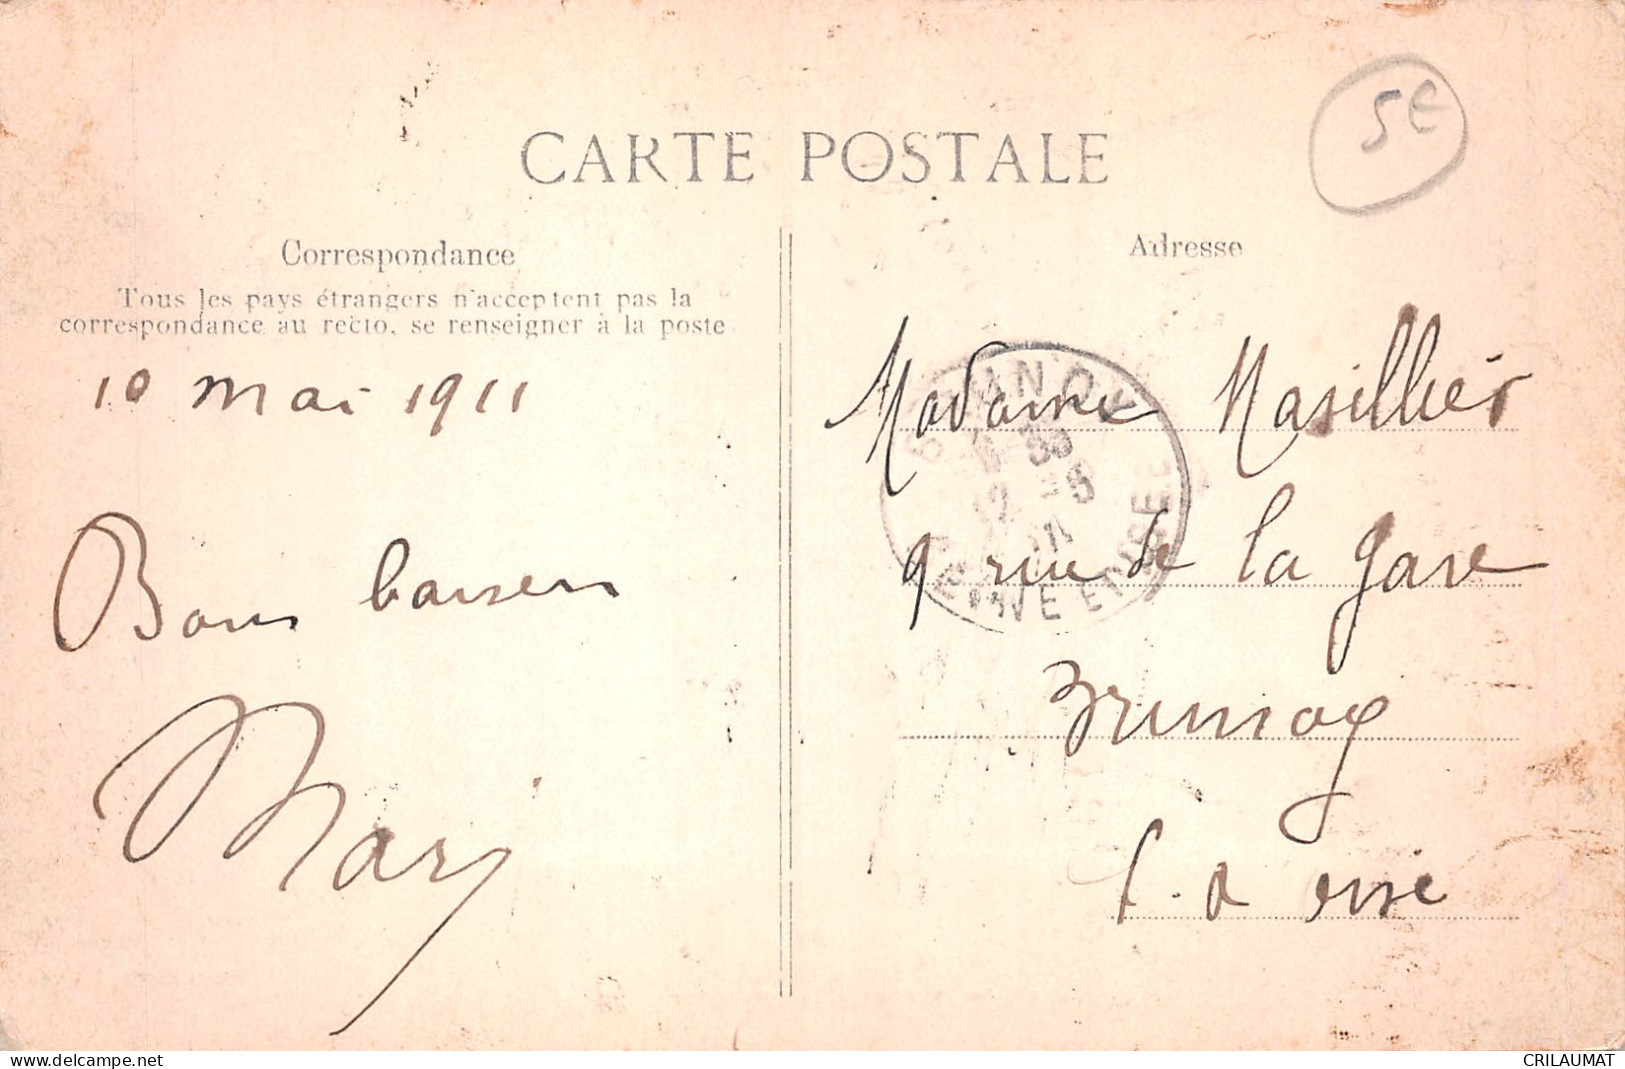 5€
CARTE POSTALE
Correspondance
Tous les pays étrangers n'acceptent pas la
correspondance au recto, se renseigner à la poste
10 mai 1911
Bons baisers
Mary
Adresse
Madame Masillier
9 rue de la gare
Brunoy
S. & oise
BRUNOY
12 -5
11
SEINE ET OISE
www.delcampe.net
CRILAUMAT